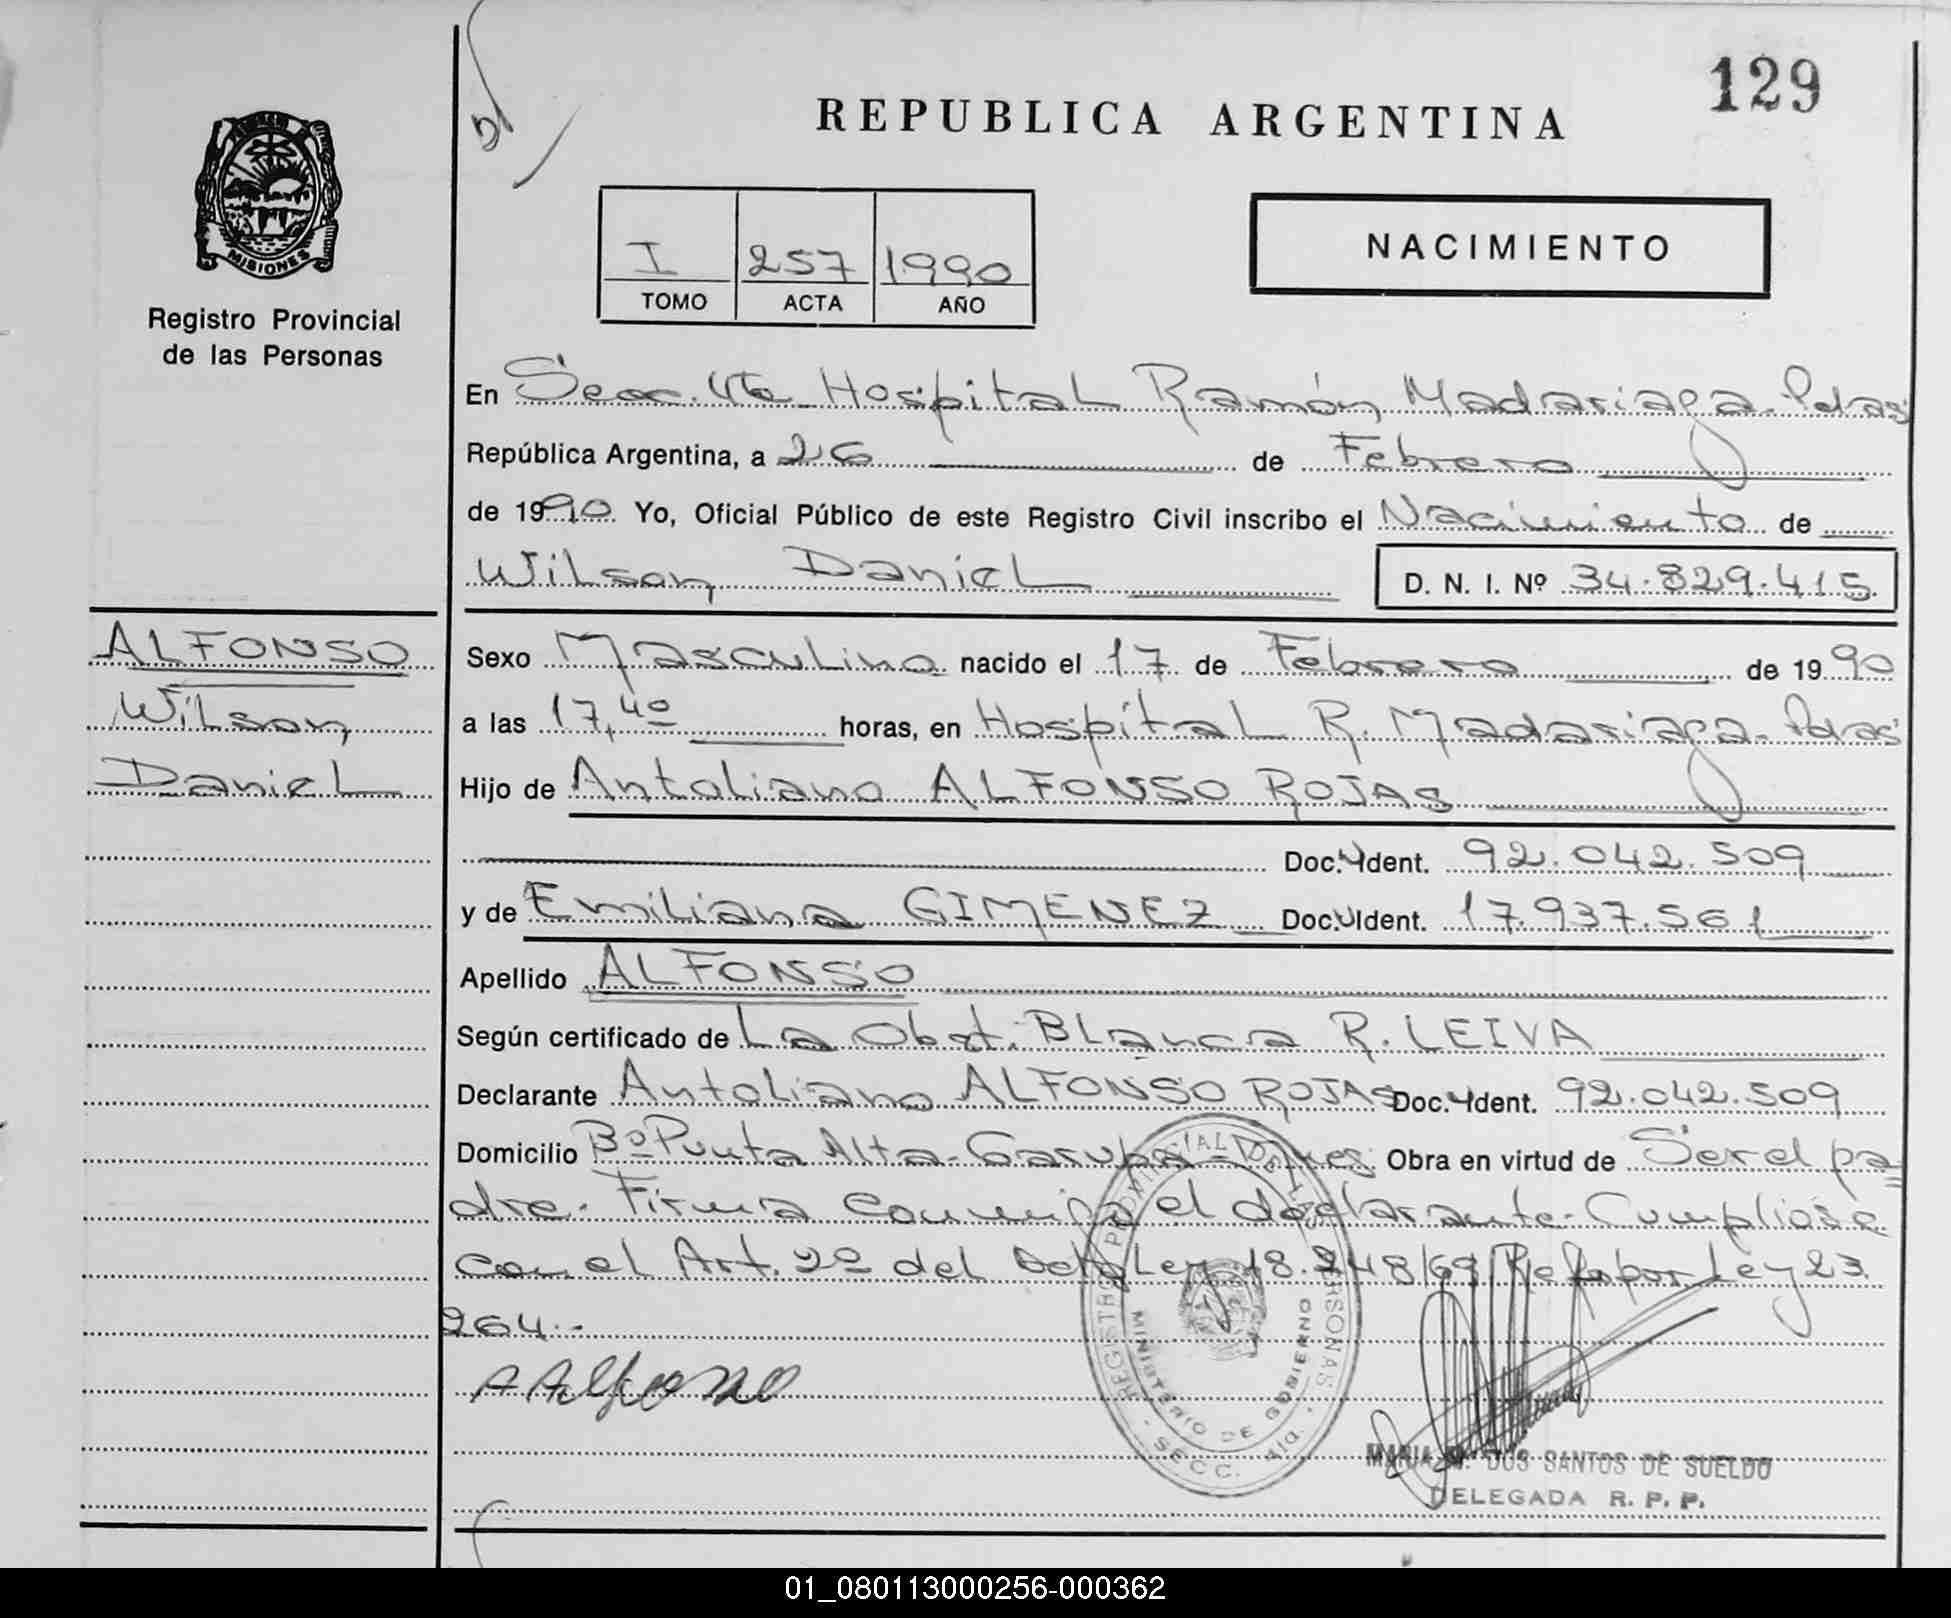 129
REPUBLICA ARGENTINA
NACIMIENTO
I 257 1990
TOMO ACTA AÑO
MISIONES
Registro Provincial
de las Personas
En Secc. 4ta Hospital Ramón Madariaga. Pdas
República Argentina, a 26 de Febrero
de 1990 Yo, Oficial Público de este Registro Civil inscribo el Nacimiento de
Wilson Daniel D. N. I. Nº 34.829.415
ALFONSO
Wilson
Daniel
Sexo Masculino nacido el 17 de Febrero de 1990
a las 17,40 horas, en Hospital R. Madariaga. Pdas
Hijo de Antoliano ALFONSO ROJAS
Doc. Ident. 92.042.509
y de Emiliana GIMENEZ Doc. Ident. 17.937.561
Apellido ALFONSO
Según certificado de La Obst. Blanca R. LEIVA
Declarante Antoliano ALFONSO ROJAS Doc. Ident. 92.042.509
Domicilio Bº Punta Alta-Garupá Obra en virtud de Ser el pa
dre. Firma conmigo el declarante. Cumpliose
con el Art. 2º del Ley 18.248/69 Ref. por Ley 23
264.-
A Alfonso
REGISTRO PROVINCIAL DE LAS PERSONAS
MINISTERIO DE GOBIERNO
SECC. 4ta.
MARIA DOS SANTOS DE SUELDO
DELEGADA R. P. P.
01_080113000256-000362